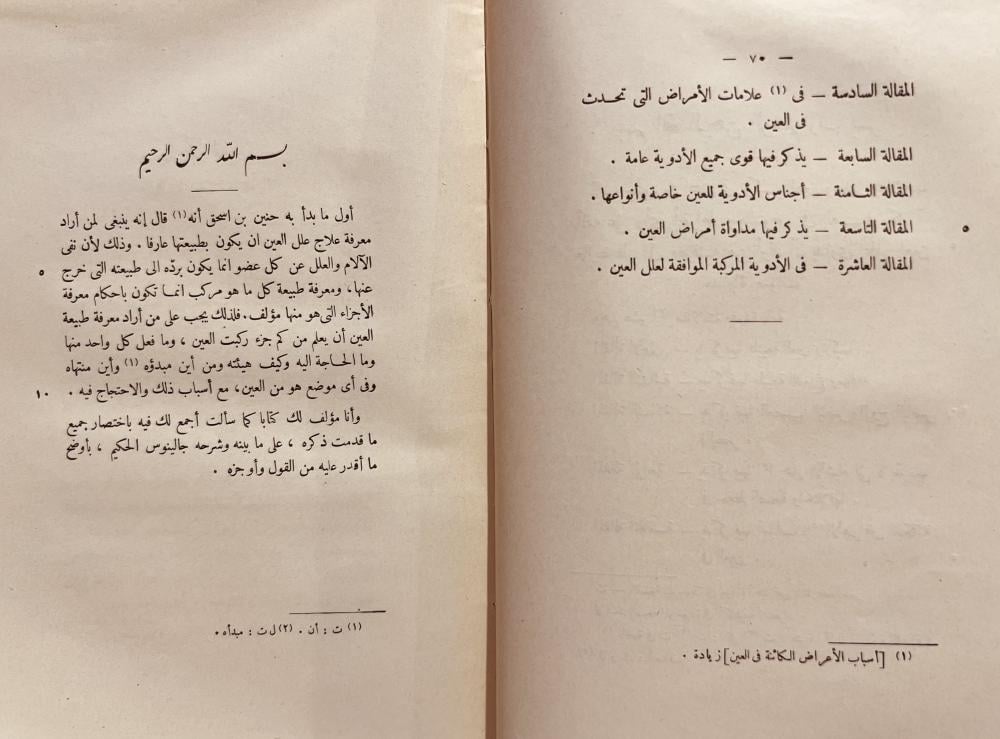 — ٧٠ —
المقالة السادسة — فى (١) علامات الأمراض التى تحدث
فى العين .
المقالة السابعة — يذكر فيها قوى جميع الأدوية عامة .
المقالة الثامنة — أجناس الأدوية للعين خاصة وأنواعها .
المقالة التاسعة — يذكر فيها مداواة أمراض العين . ٥
المقالة العاشرة — فى الأدوية المركبة الموافقة لعلل العين .
(١) [أسباب الأعراض الكائنة فى العين] زيادة .
بسم الله الرحمن الرحيم
أول ما بدأ به حنين بن اسحق أنه(١) قال إنه ينبغى لمن أراد
معرفة علاج علل العين ان يكون بطبيعتها عارفا . وذلك لأن نفى
الآلام والعلل عن كل عضو انما يكون بردّه الى طبيعته التى خرج ٥
عنها، ومعرفة طبيعة كل ما هو مركب انما تكون باحكام معرفة
الأجزاء التى هو منها مؤلف. فلذلك يجب على من أراد معرفة طبيعة
العين أن يعلم من كم جزء ركبت العين ، وما فعل كل واحد منها
وما الحاجة اليه وكيف هيئته ومن أين مبدؤه (١) وأين منتهاه
وفى أى موضع هو من العين، مع أسباب ذلك والاحتجاج فيه . ١٠
وأنا مؤلف لك كتابا كما سألت أجمع لك فيه باختصار جميع
ما قدمت ذكره ، على ما بينه وشرحه جالينوس الحكيم ، بأوضح
ما أقدر عليه من القول وأوجزه .
(١) ت : أن . (٢) ل ت : مبدأه .